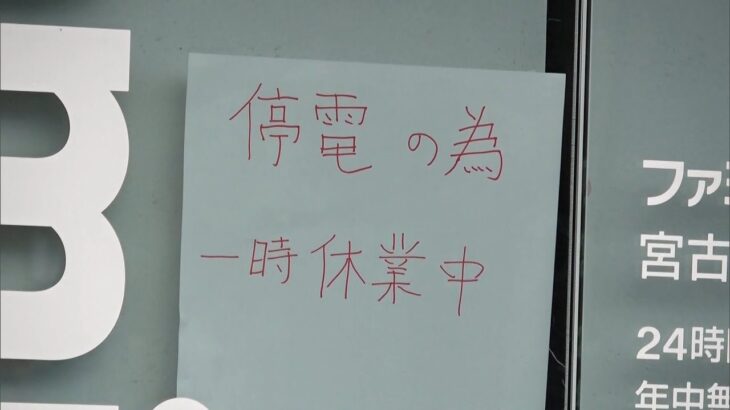 停電の為
一時休業中
ファミ
宮古
24時
年中無